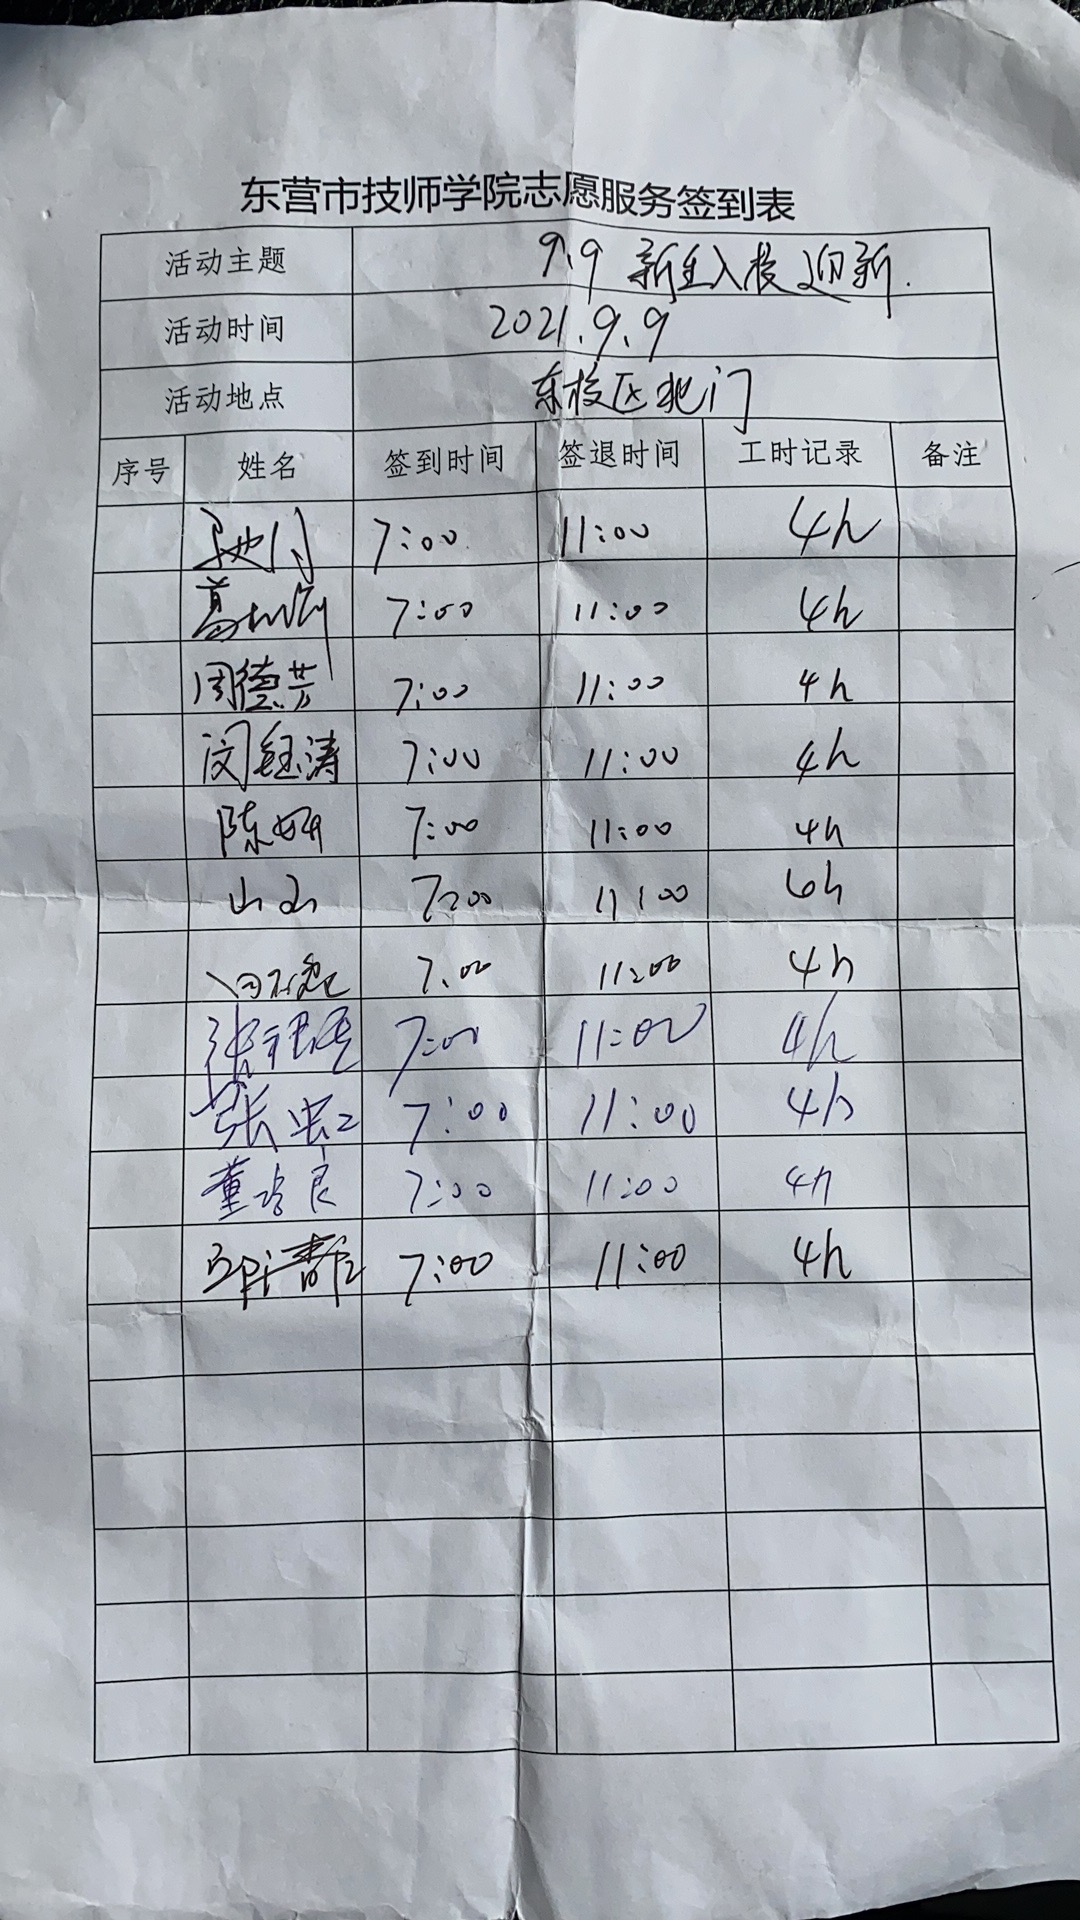 东营市技师学院志愿服务签到表
活动主题 9.9 新生入校迎新.
活动时间 2021.9.9
活动地点 东校区北门
序号 姓名 签到时间 签退时间 工时记录 备注
7:00 11:00 4h
葛 7:00 11:00 4h
周德芳 7:00 11:00 4h
闵钰涛 7:00 11:00 4h
陈妍 7:00 11:00 4h
7:00 11:00 6h
7:00 11:00 4h
张 7:00 11:00 4h
张 7:00 11:00 4h
董 良 7:00 11:00 4h
7:00 11:00 4h